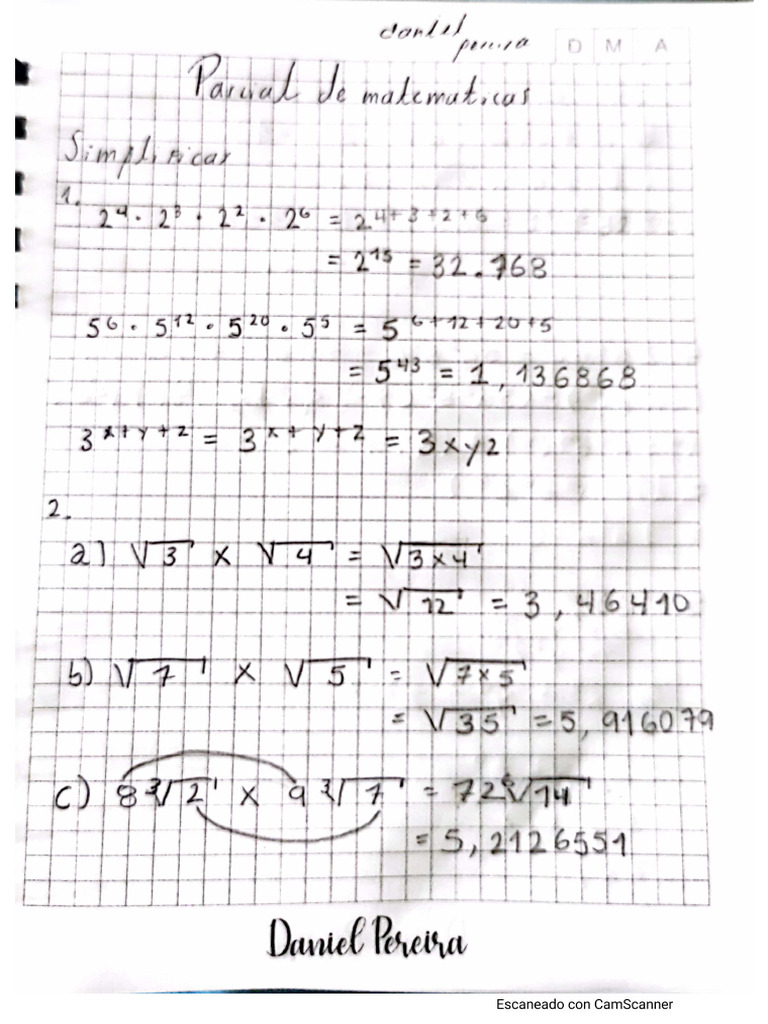 daniel
pereira
D M A
Parcial de matematicas
Simplificar
1.
2⁴ · 2³ · 2² · 2⁶ = 2⁴⁺³⁺²⁺⁶
= 2¹⁵ = 32.768
5⁶ · 5¹² · 5²⁰ · 5⁵ = 5⁶⁺¹²⁺²⁰⁺⁵
= 5⁴³ = 1,136868
3^x+y+z = 3^x+y+z = 3xyz
2.
a) √3 × √4 = √3×4
= √12 = 3,46410
b) √7 × √5 = √7×5
= √35 = 5,916079
c) 8∛2 × 9∛7 = 72⁶√14
= 5,2126551
Daniel Pereira
Escaneado con CamScanner